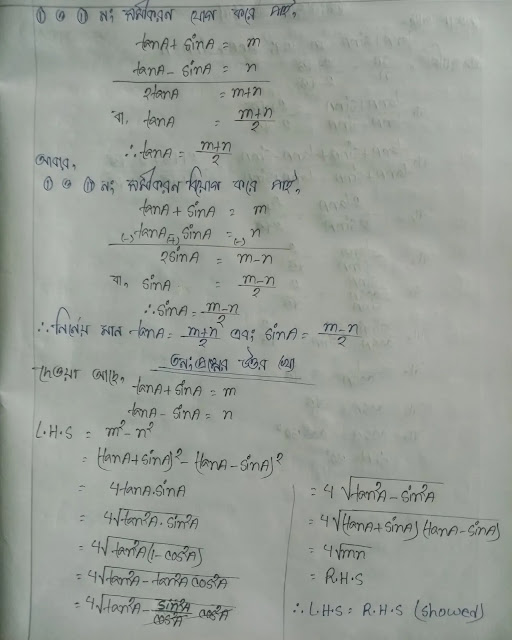 ① ও ② নং সমীকরণ যোগ করে পাই,
tanA + sinA = m
tanA - sinA = n
2tanA = m+n
বা, tanA = m+n/2
∴ tanA = m+n/2
আবার,
① ও ② নং সমীকরণ বিয়োগ করে পাই,
tanA + sinA = m
(-) tanA (+) sinA = (-) n
2sinA = m-n
বা, sinA = m-n/2
∴ sinA = m-n/2
∴ নির্ণেয় মান tanA = m+n/2 এবং sinA = m-n/2
প্রশ্নের উত্তর
দেওয়া আছে,
tanA + sinA = m
tanA - sinA = n
L.H.S = m² - n²
= (tanA + sinA)² - (tanA - sinA)²
= 4tanA.sinA
= 4√tan²A . sin²A
= 4√tan²A(1 - cos²A)
= 4√tan²A - tan²A cos²A
= 4√tan²A - sin²A/cos²A cos²A
= 4√tan²A - sin²A
= 4√(tanA + sinA)(tanA - sinA)
= 4√mn
= R.H.S
∴ L.H.S = R.H.S (showed)